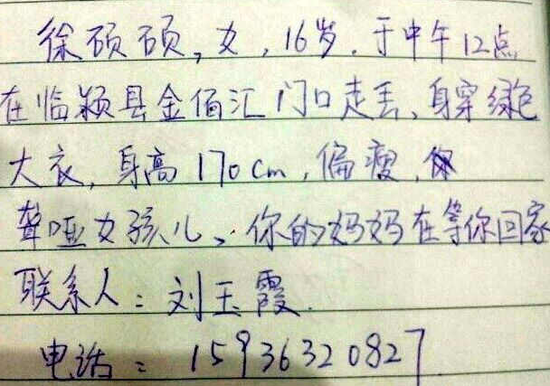 徐硕硕,女,16岁.于中午12点
在临颍县金佰汇门口走丢、身穿绿色
大衣,身高170cm,偏瘦,
聋哑女孩儿、你的妈妈在等你回家
联系人:刘玉霞.
电话:15936320827